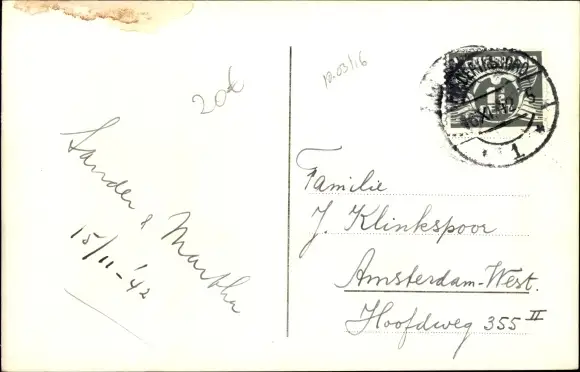 20€
Sander & Martha
15/11-'42
10.03/16
Familie
J. Klinkspoor
Amsterdam-West.
Hoofdweg 355 II
1